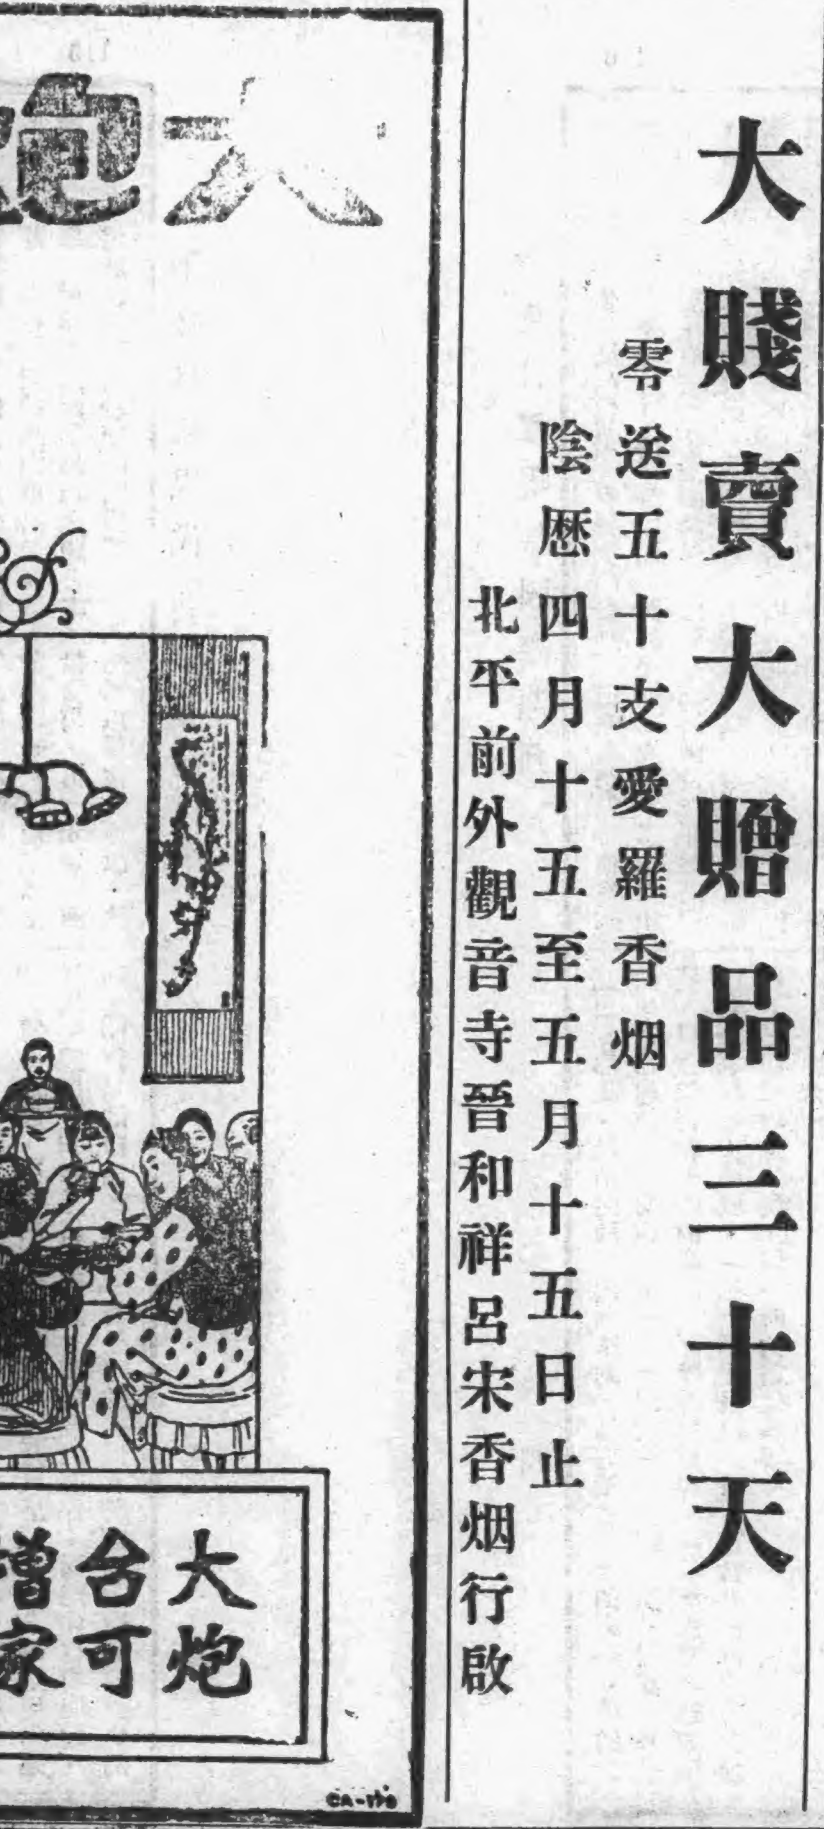 大賤賣大贈品三十天
零送五十支愛羅香烟
陰厯四月十五至五月十五日止
北平前外觀音寺晉和祥呂宋香烟行啟
大炮
大台增
炮可家